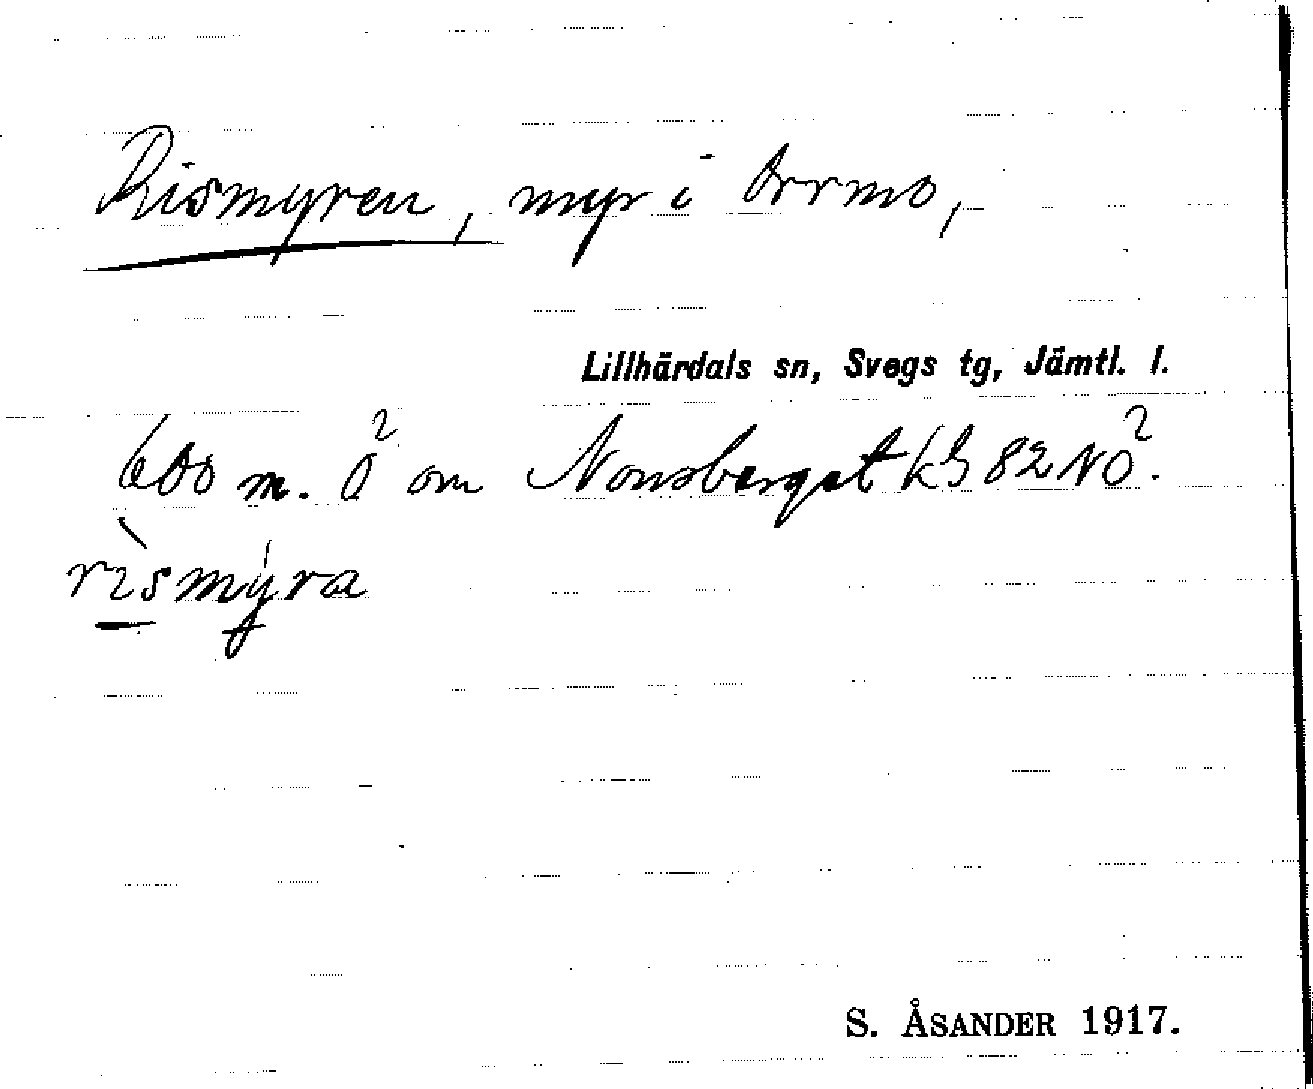 Rismyren, myr i Orrmo,
Lillhärdals sn, Svegs tg, Jämtl. l.
600 m. Ö om Nonsberget kb 82 NÖ.
rìsmýra
S. ÅSANDER 1917.